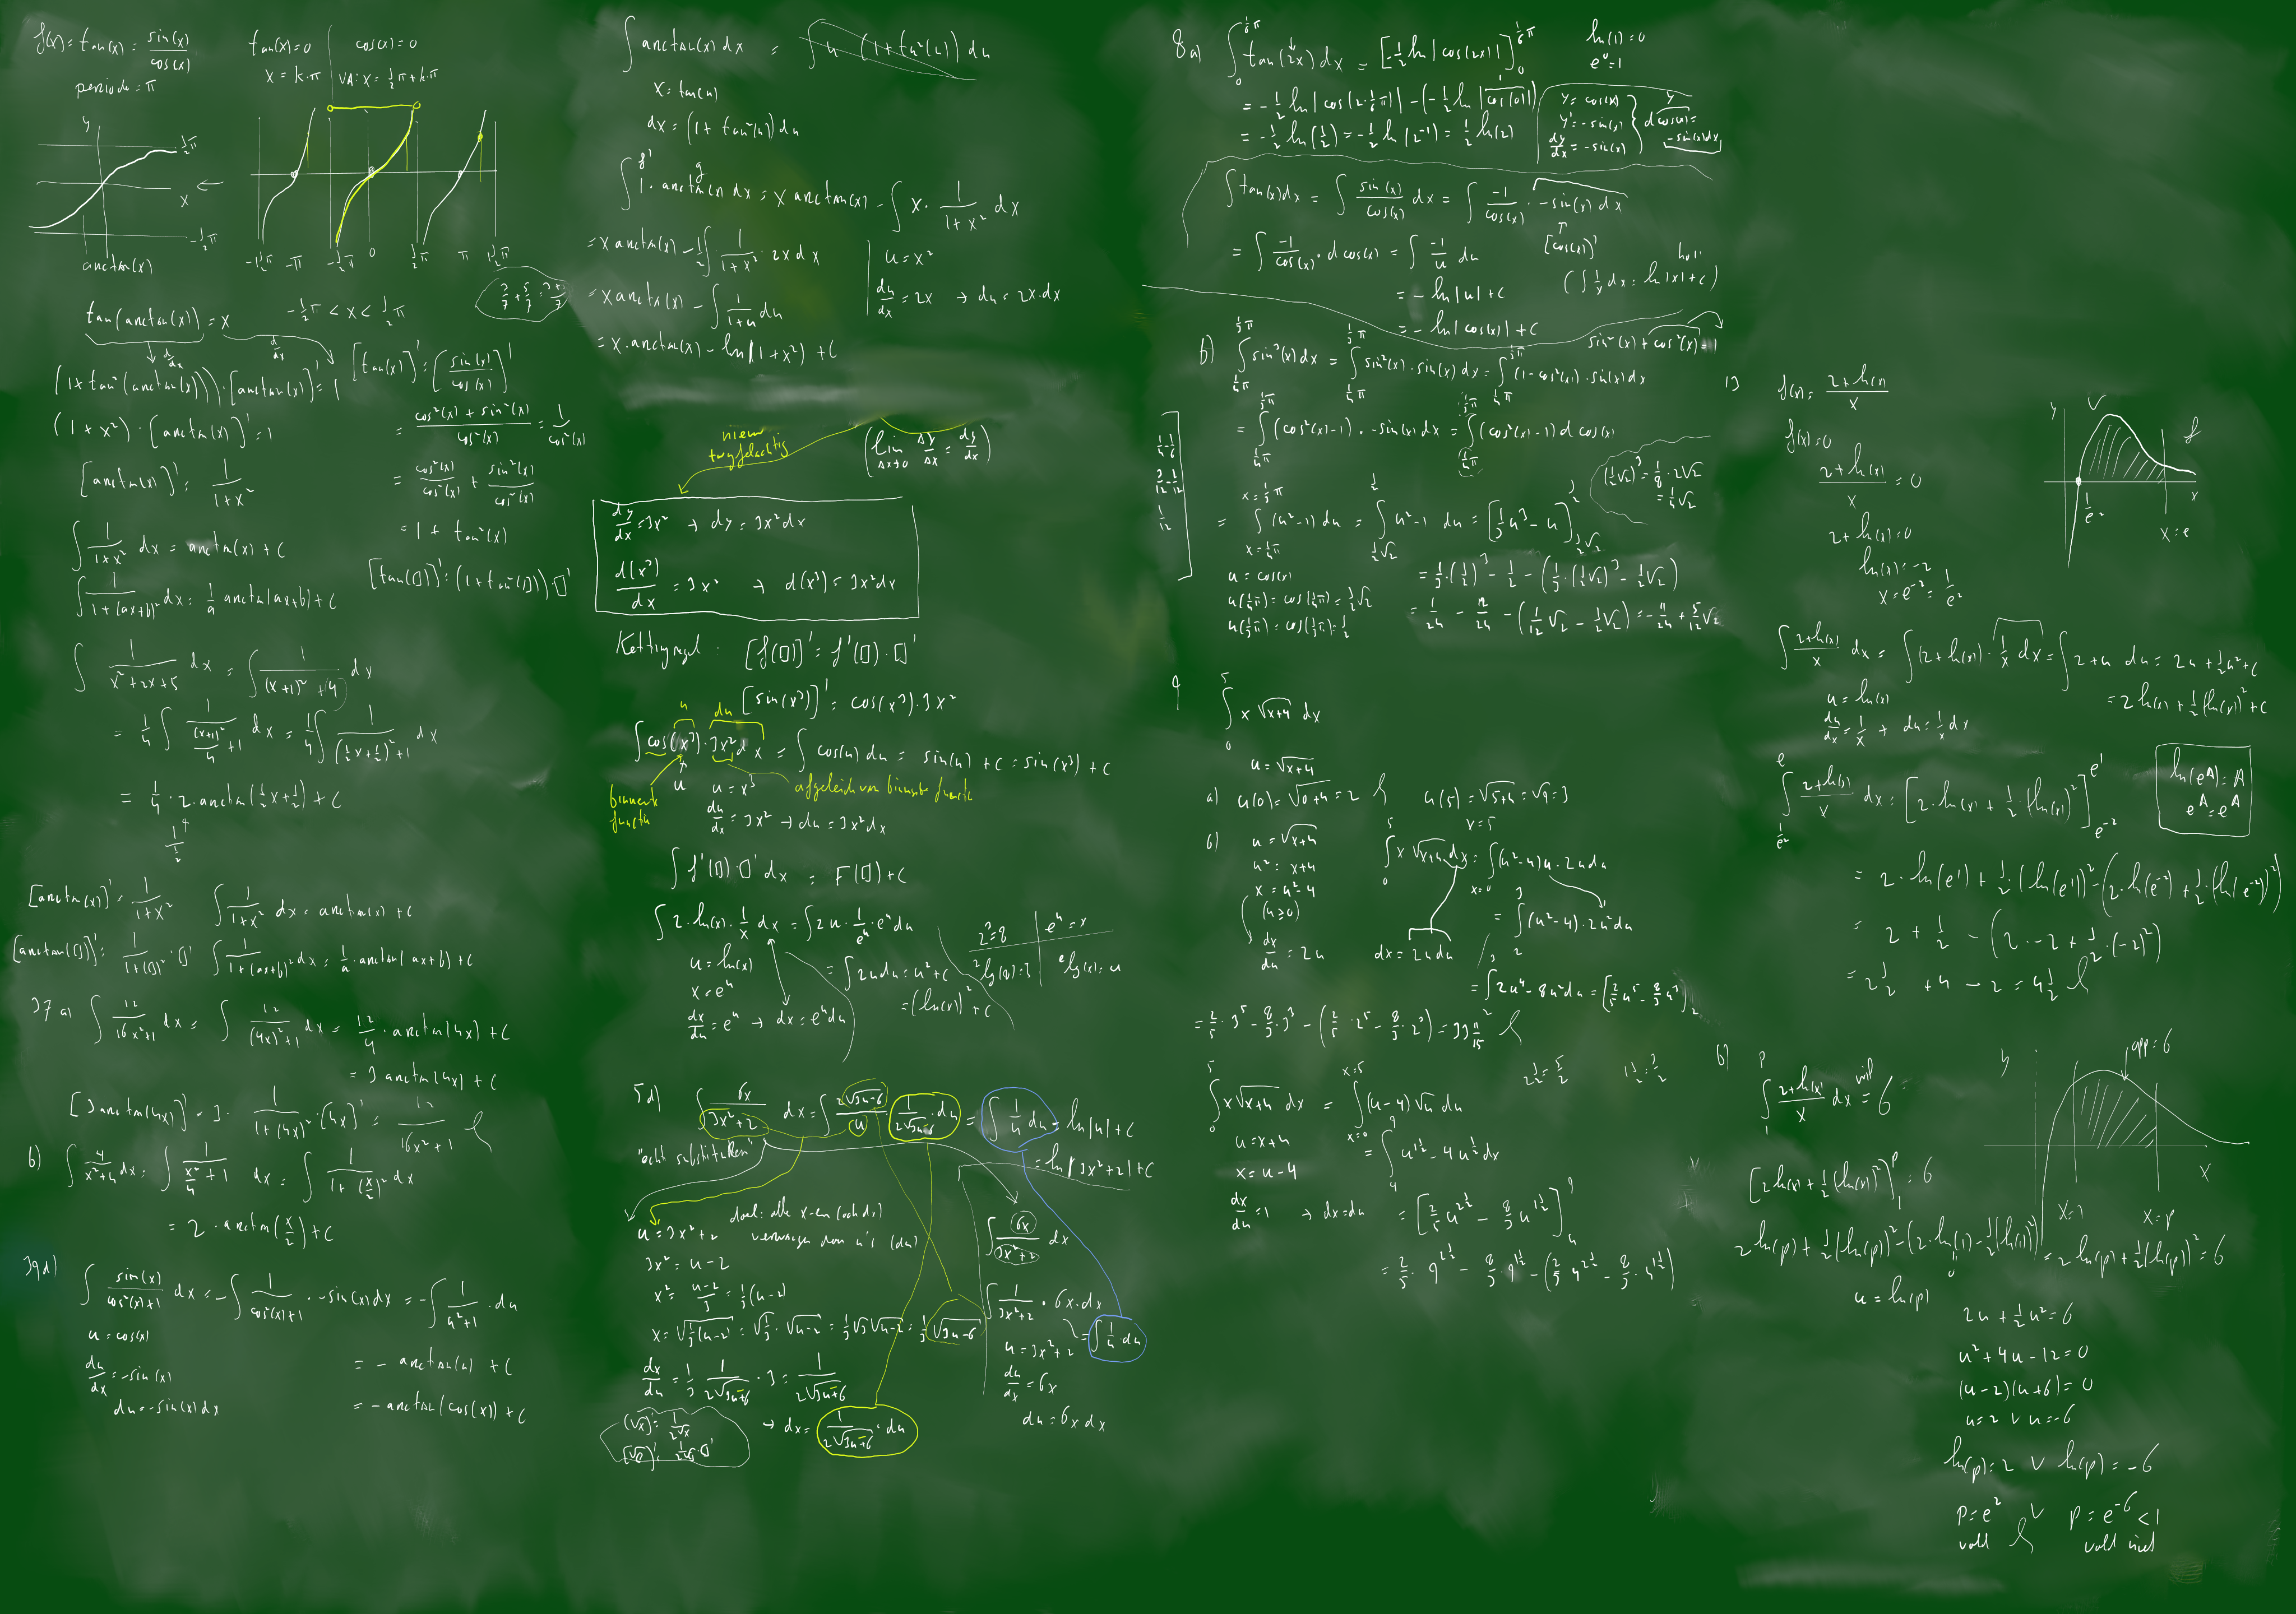 f(x) = tan(x) = sin(x)/cos(x)
periode = π
tan(x) = 0
x = k·π
cos(x) = 0
VA: x = ½π + k·π
y
½π
x
-½π
arctan(x)
-1½π -π -½π 0 ½π π 1½π
-½π < x < ½π
tan(arctan(x)) = x
d/dx d/dx
(1 + tan²(arctan(x))) · [arctan(x)]' = 1
(1 + x²) · [arctan(x)]' = 1
[arctan(x)]' = 1/(1+x²)
∫ 1/(1+x²) dx = arctan(x) + C
∫ 1/(1+(ax+b)²) dx = 1/a arctan(ax+b) + C
[tan(x)]' = [sin(x)/cos(x)]'
= (cos²(x) + sin²(x))/cos²(x) = 1/cos²(x)
= cos²(x)/cos²(x) + sin²(x)/cos²(x)
= 1 + tan²(x)
[tan(▯)]' = (1 + tan²(▯)) · ▯'
∫ 1/(x²+2x+5) dx = ∫ 1/((x+1)²+4) dx
= ¼ ∫ 1/((x+1)²/4 + 1) dx = ¼ ∫ 1/((½x+½)²+1) dx
= ¼ · 2 · arctan(½x+½) + C
1/½
[arctan(x)]' = 1/(1+x²) ∫ 1/(1+x²) dx = arctan(x) + C
[arctan(▯)]' = 1/(1+(▯)²) · ▯' ∫ 1/(1+(ax+b)²) dx = 1/a · arctan(ax+b) + C
37 a) ∫ 12/(16x²+1) dx = ∫ 12/((4x)²+1) dx = 12/4 · arctan(4x) + C
= 3 arctan(4x) + C
[3 arctan(4x)]' = 3 · 1/(1+(4x)²) · (4x)' = 12/(16x²+1)
b) ∫ 4/(x²+4) dx = ∫ 1/(x²/4 + 1) dx = ∫ 1/(1+(x/2)²) dx
= 2 · arctan(x/2) + C
39d) ∫ sin(x)/(cos²(x)+1) dx = -∫ 1/(cos²(x)+1) · -sin(x) dx = -∫ 1/(u²+1) · du
u = cos(x)
du/dx = -sin(x)
du = -sin(x) dx
= - arctan(u) + C
= - arctan(cos(x)) + C
∫ arctan(x) dx = ∫ u · (1 + tan²(u)) du
x = tan(u)
dx = (1 + tan²(u)) du
f' g
∫ 1 · arctan(x) dx = x arctan(x) - ∫ x · 1/(1+x²) dx
= x arctan(x) - ½ ∫ 1/(1+x²) · 2x dx
= x arctan(x) - ∫ 1/(1+u) du
= x · arctan(x) - ln|1+x²| + C
u = x²
du/dx = 2x → du = 2x·dx
(lim Δx→0 Δy/Δx = dy/dx)
dy/dx = 3x² → dy = 3x² dx
d(x³)/dx = 3x² → d(x³) = 3x² dx
Kettingregel: [f(▯)]' = f'(▯) · ▯'
[sin(x³)]' = cos(x³) · 3x²
u du
∫ cos(x³) · 3x² dx = ∫ cos(u) du = sin(u) + C = sin(x³) + C
u
binnenste functie
afgeleide van binnenste functie
u = x³
du/dx = 3x² → du = 3x² dx
∫ f'(▯) · ▯' dx = F(▯) + C
∫ 2 · ln(x) · 1/x dx = ∫ 2u · 1/eᵘ · eᵘ du
u = ln(x)
x = eᵘ
dx/du = eᵘ → dx = eᵘ du
= ∫ 2u du = u² + C
= (ln(x))² + C
2³ = 8 eᵘ = x
²log(8) = 3 ᵉlog(x) = u
5d) ∫ 6x/(3x²+2) dx = ∫ 2√(3u-6)/u · 1/(2√(3u-6)) · du = ∫ 1/u du = ln|u| + C
= ln|3x²+2| + C
"echt substitutie"
u = 3x²+2
doel: alle x-en (ook dx)
vervangen door u's (du)
3x² = u-2
x² = (u-2)/3 = ⅓(u-2)
x = √(⅓(u-2)) = √⅓ · √(u-2) = ⅓√3 √(u-2) = ⅓ √(3u-6)
dx/du = ⅓ · 1/(2√(3u-6)) · 3 = 1/(2√(3u-6))
→ dx = 1/(2√(3u-6)) · du
(√x)' = 1/(2√x)
[√▯]' = 1/(2√▯) · ▯'
∫ 6x/(3x²+2) dx
∫ 1/(3x²+2) · 6x · dx
= ∫ 1/u · du
u = 3x²+2
du/dx = 6x
du = 6x dx
8a) ∫₀^(⅙π) tan(2x) dx = [-½ ln|cos(2x)|]₀^(⅙π)
= -½ ln|cos(2·⅙π)| - (-½ ln|cos(0)|)
= -½ ln(½) = -½ ln(2⁻¹) = ½ ln(2)
ln(1) = 0
e⁰ = 1
y = cos(x)
y' = -sin(x)
dy/dx = -sin(x)
d cos(x) = -sin(x) dx
∫ tan(x) dx = ∫ sin(x)/cos(x) dx = ∫ -1/cos(x) · -sin(x) dx
[cos(x)]'
= ∫ -1/cos(x) · d cos(x) = ∫ -1/u du
(∫ 1/x dx = ln|x| + C)
= - ln|u| + C
= - ln|cos(x)| + C
sin²(x) + cos²(x) = 1
b) ∫_(¼π)^(⅓π) sin³(x) dx = ∫_(¼π)^(⅓π) sin²(x) · sin(x) dx = ∫_(¼π)^(⅓π) (1-cos²(x)) · sin(x) dx
= ∫_(¼π)^(⅓π) (cos²(x)-1) · -sin(x) dx = ∫_(¼π)^(⅓π) (cos²(x)-1) d cos(x)
= ∫_(x=¼π)^(x=⅓π) (u²-1) du = ∫_(½√2)^(½) u²-1 du = [⅓u³ - u]_(½√2)^(½)
(½√2)³ = ⅛ · 2√2
= ¼√2
u = cos(x)
u(¼π) = cos(¼π) = ½√2
u(⅓π) = cos(⅓π) = ½
= ⅓·(½)³ - ½ - (⅓·(½√2)³ - ½√2)
= 1/24 - 12/24 - (1/12 √2 - ½√2) = -11/24 + 5/12 √2
9 ∫₀⁵ x √(x+4) dx
u = √(x+4)
a) u(0) = √(0+4) = 2 u(5) = √(5+4) = √9 = 3
b) u = √(x+4)
u² = x+4
x = u²-4
(u≥0)
dx/du = 2u
dx = 2u du
∫₀⁵ x √(x+4) dx = ∫_(x=0)^(x=5) (u²-4)u · 2u du
= ∫₂³ (u²-4) · 2u² du
= ∫₂³ 2u⁴ - 8u² du = [⅖u⁵ - 8/3 u³]₂³
= ⅖ · 3⁵ - 8/3 · 3³ - (⅖ · 2⁵ - 8/3 · 2³) = 33 11/15
2½ = 5/2 1½ = 3/2
∫₀⁵ x√(x+4) dx = ∫_(x=0)^(x=5) (u-4) √u du
u = x+4
x = u-4
dx/du = 1 → dx = du
= ∫₄⁹ u^(1½) - 4u^(½) dx
= [⅖ u^(2½) - 8/3 u^(1½)]₄⁹
= ⅖ · 9^(2½) - 8/3 · 9^(1½) - (⅖ 4^(2½) - 8/3 · 4^(1½))
13 f(x) = (2+ln(x))/x
f(x) = 0
(2+ln(x))/x = 0
2 + ln(x) = 0
ln(x) = -2
x = e⁻² = 1/e²
y
V
f
1/e²
x
x = e
∫ (2+ln(x))/x dx = ∫ (2+ln(x)) · 1/x dx = ∫ 2+u du = 2u + ½u² + C
u = ln(x)
du/dx = 1/x → du = 1/x dx
= 2 ln(x) + ½(ln(x))² + C
∫_(1/e²)^e (2+ln(x))/x dx = [2·ln(x) + ½·(ln(x))²]_(e⁻²)^(e¹)
ln(eᴬ) = A
eᴬ = eᴬ
= 2 · ln(e¹) + ½ · (ln(e¹))² - (2·ln(e⁻²) + ½·(ln(e⁻²))²)
= 2 + ½ - (2·-2 + ½·(-2)²)
= 2½ + 4 - 2 = 4½
b) ∫₁ᵖ (2+ln(x))/x dx = 6
y
opp = 6
x
x=1 x=p
[2 ln(x) + ½(ln(x))²]₁ᵖ = 6
2 ln(p) + ½(ln(p))² - (2·ln(1) - ½(ln(1))²) = 2 ln(p) + ½(ln(p))² = 6
0
u = ln(p)
2u + ½u² = 6
u² + 4u - 12 = 0
(u-2)(u+6) = 0
u = 2 ∨ u = -6
ln(p) = 2 ∨ ln(p) = -6
p = e² ∨ p = e⁻⁶ < 1
vold vold niet